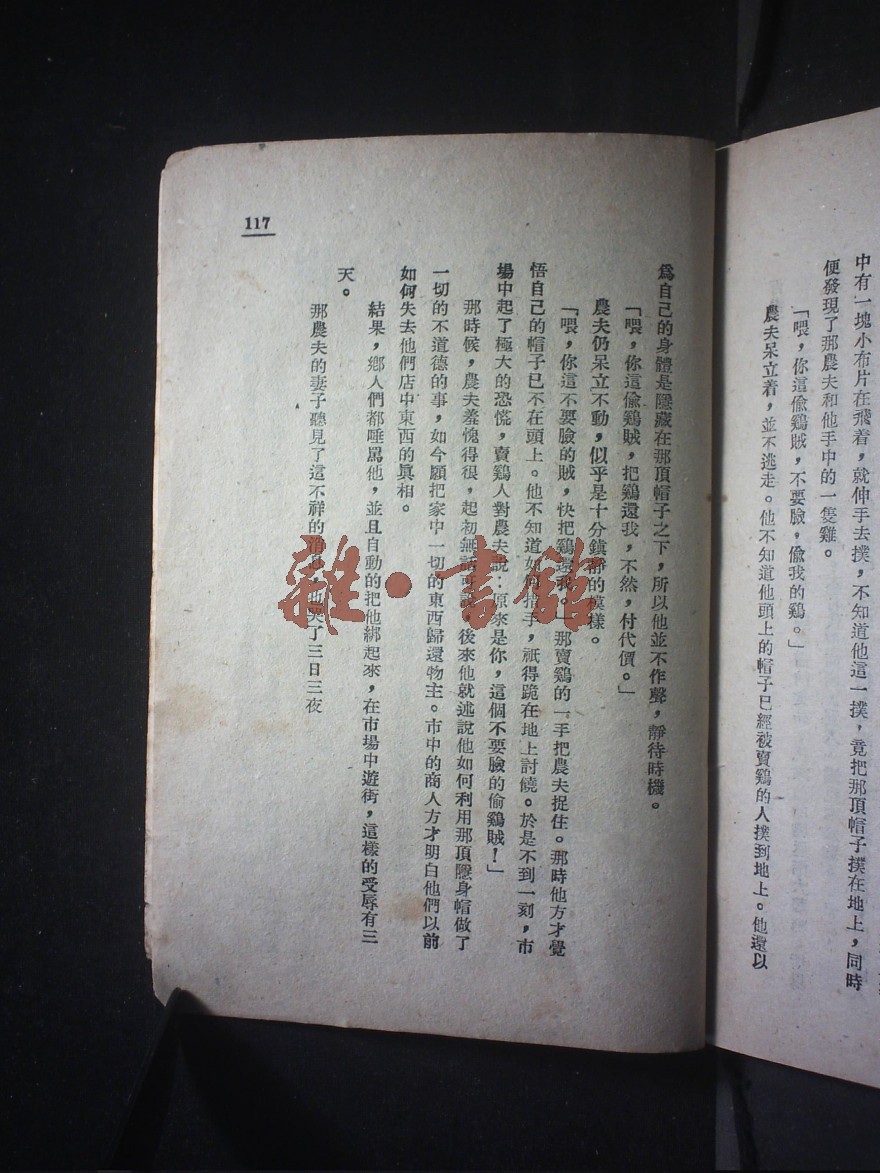 中有一塊小布片在飛着，就伸手去撲，不知道他這一撲，竟把那頂帽子撲在地上，同時
便發現了那農夫和他手中的一隻雞。
「喂，你這偷鷄賊，不要臉，偷我的鷄。」
農夫呆立着，並不逃走。他不知道他頭上的帽子已經被賣鷄的人撲到地上。他還以
爲自己的身體是隱藏在那頂帽子之下，所以他並不作聲，靜待時機。
「喂，你這偷鷄賊，把鷄還我，不然，付代價。」
農夫仍呆立不動，似乎是十分鎮靜的模樣。
「喂，你這不要臉的賊，快把鷄還我。」那賣鷄的一手把農夫捉住。那時他方才覺
悟自己的帽子已不在頭上。他不知道如何措手，祇得跪在地上討饒。於是不到一刻，市
場中起了極大的恐慌，賣鷄人對農夫說：原來是你，這個不要臉的偷鷄賊！」
那時候，農夫羞愧得很，起初無話可說，後來他就述說他如何利用那頂隱身帽做了
一切的不道德的事，如今願把家中一切的東西歸還物主。市中的商人方才明白他們以前
如何失去他們店中東西的眞相。
結果，鄉人們都唾罵他，並且自動的把他綁起來，在市場中遊街，這樣的受辱有三
天。
那農夫的妻子聽見了這不祥的消息，也哭了三日三夜
117
雜·書館